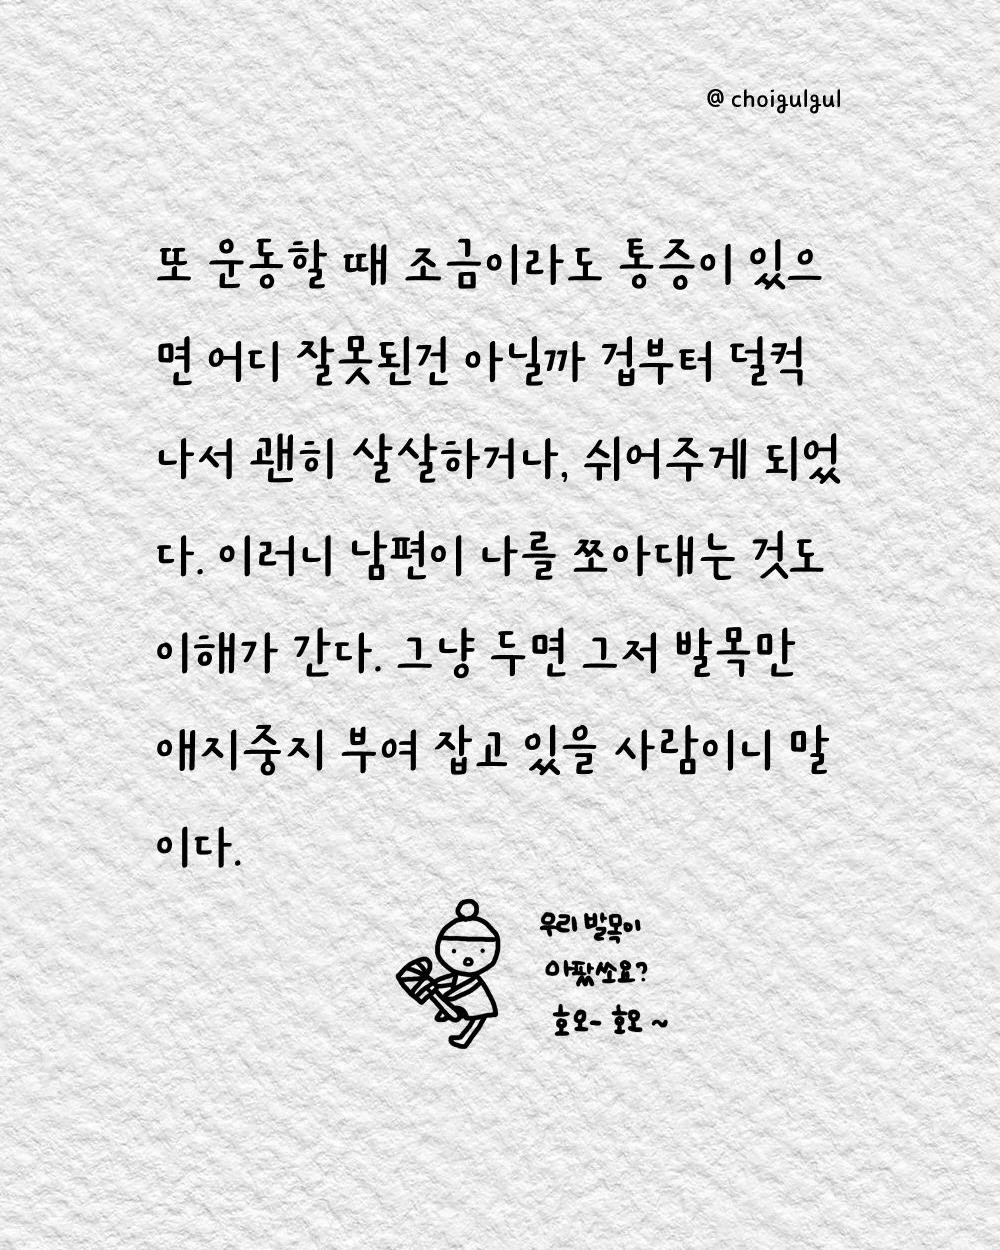 @ choigulgul
또 운동할 때 조금이라도 통증이 있으
면 어디 잘못된건 아닐까 겁부터 덜컥
나서 괜히 살살하거나, 쉬어주게 되었
다. 이러니 남편이 나를 쪼아대는 것도
이해가 간다. 그냥 두면 그저 발목만
애지중지 부여 잡고 있을 사람이니 말
이다.
우리 발목이
아팠쏘요?
호오- 호오 ~